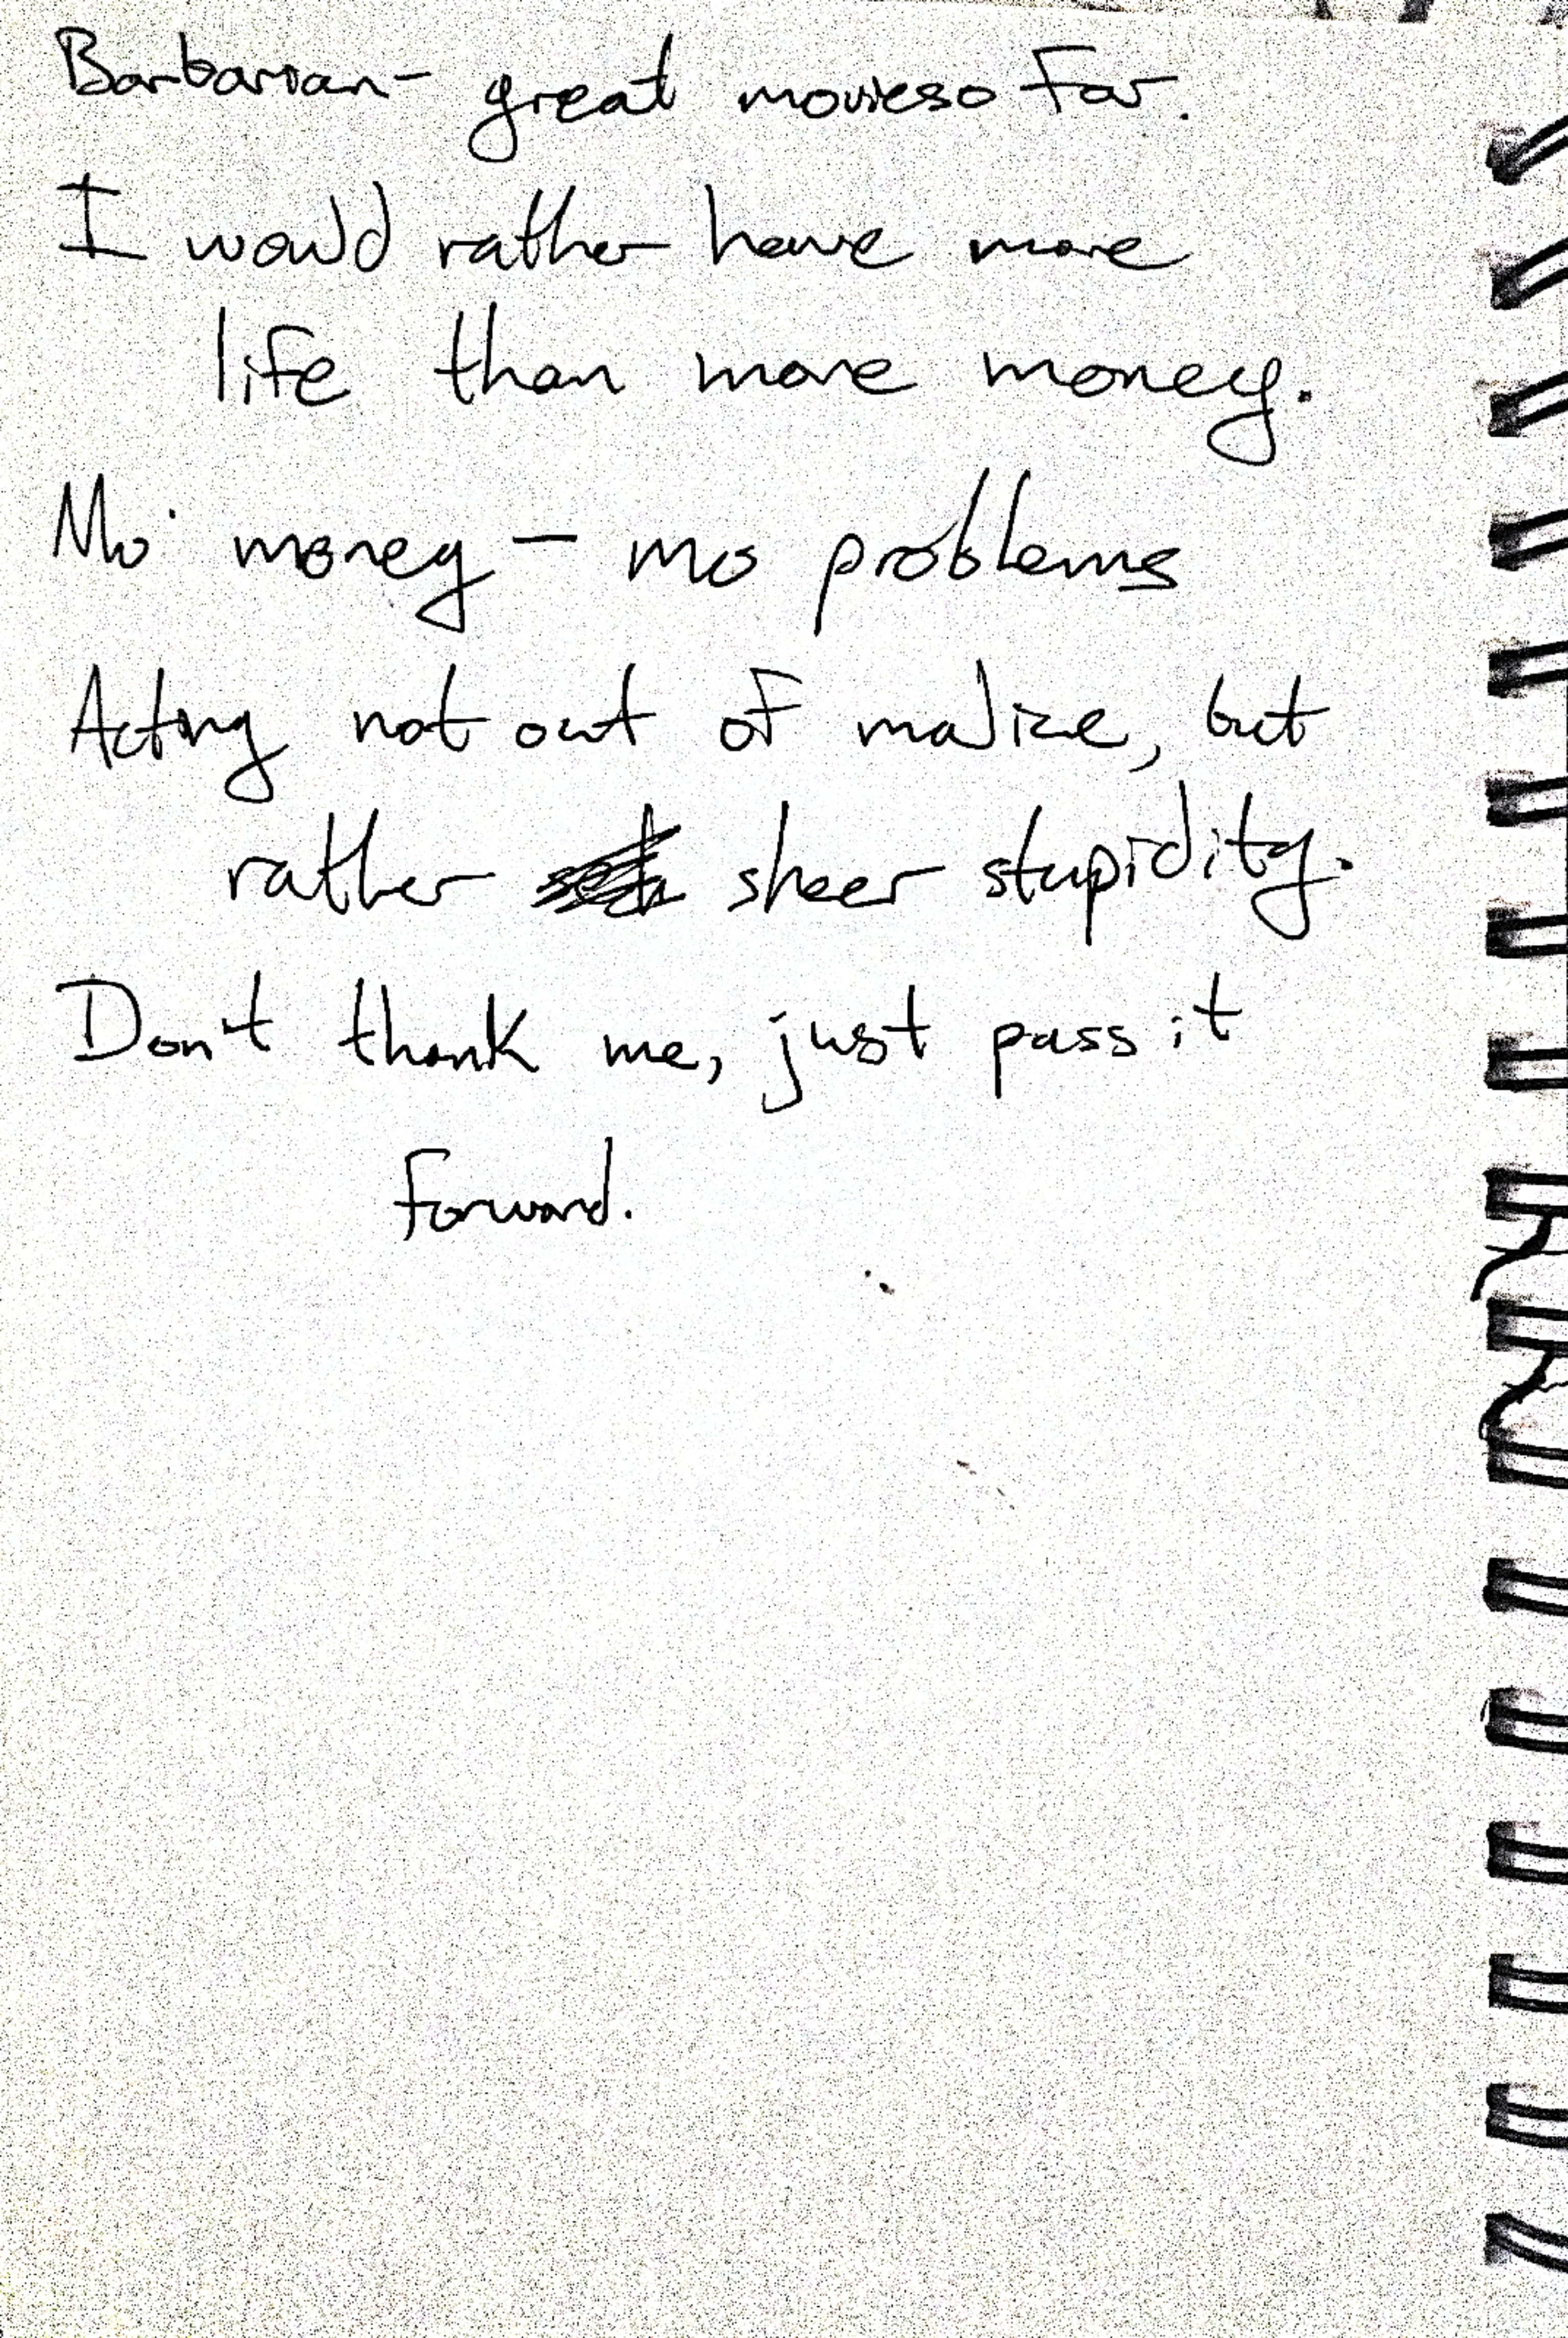 Barbarian - great movie so far.
I would rather have more
life than more money.
Mo' money - mo problems
Acting not out of malice, but
rather sheer stupidity.
Don't thank me, just pass it
forward.